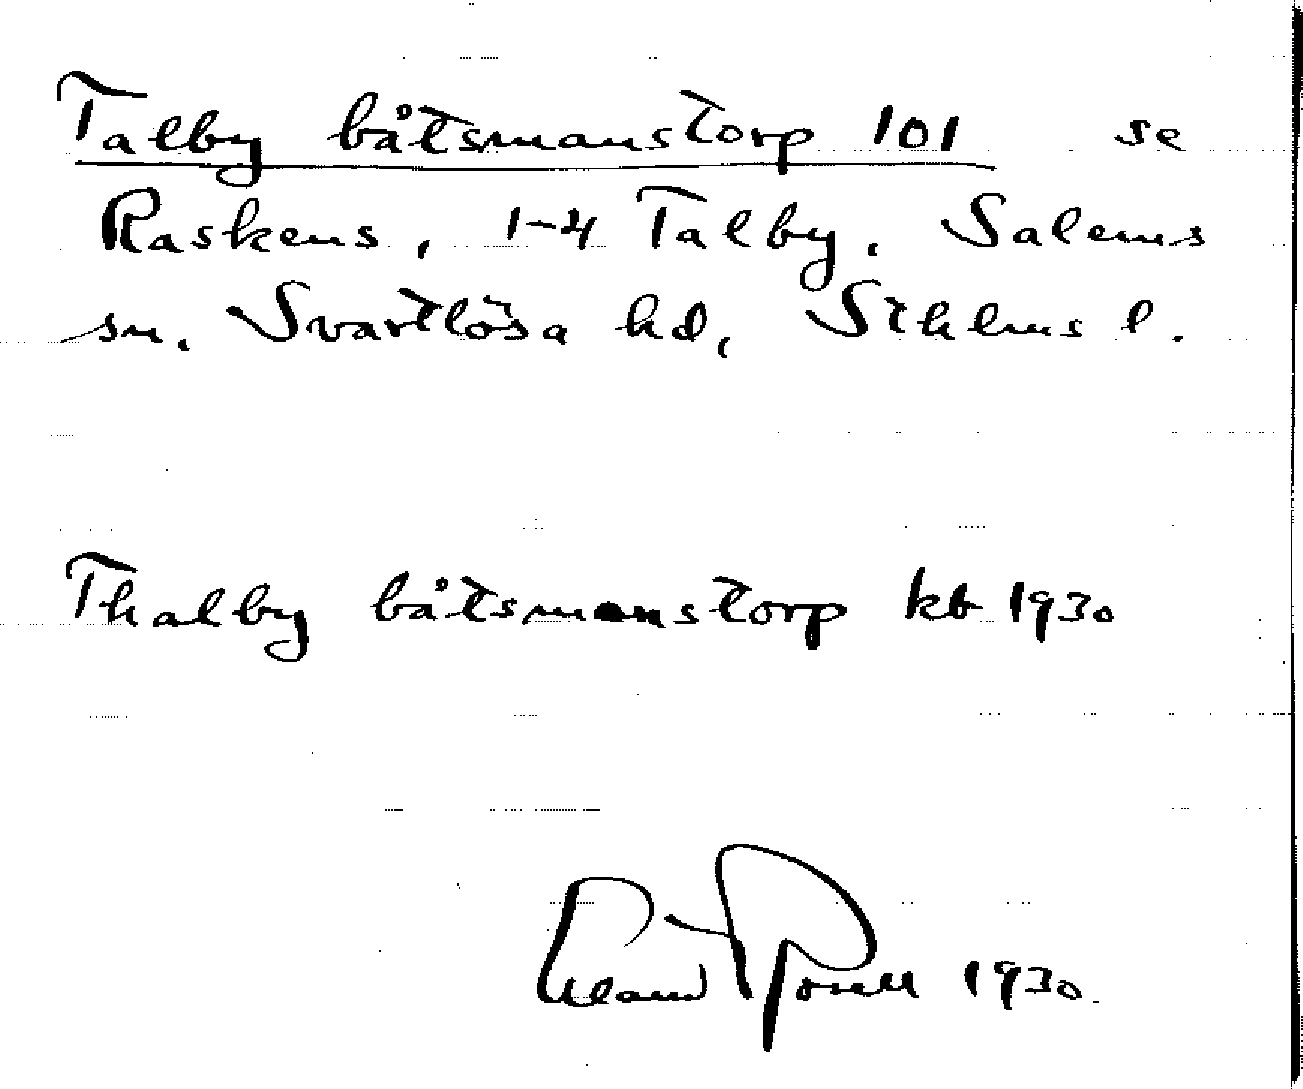 Talby båtsmanstorp 101 se
Raskens, 1-4 Talby. Salems
sn. Svartlösa hd, Sthlms l.
Thalby båtsmanstorp kb 1930
1930.